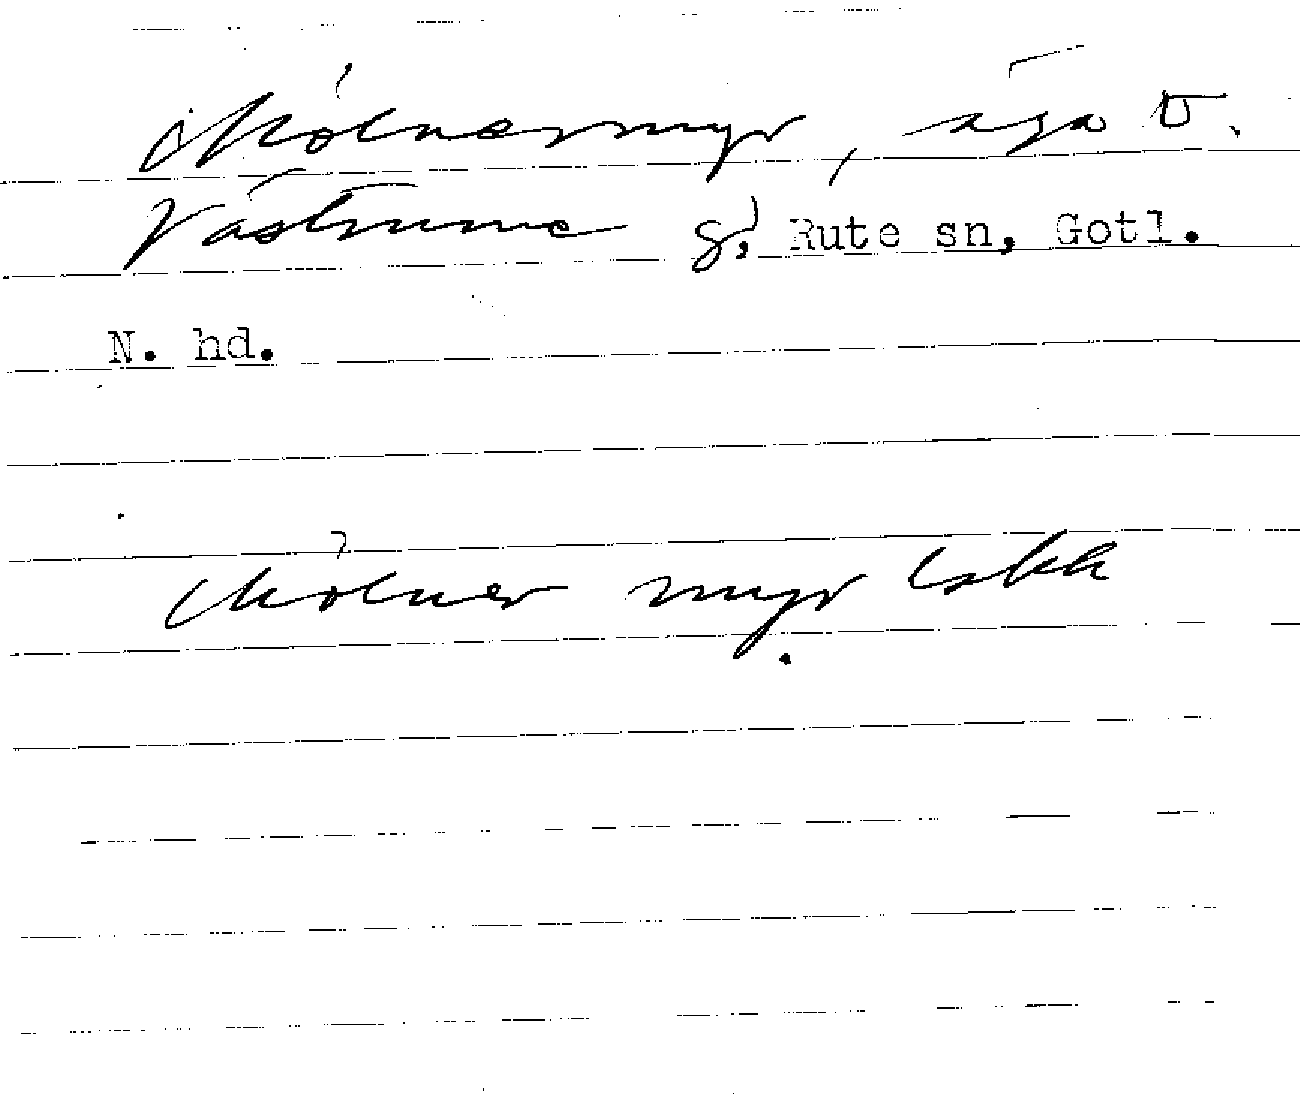 Mölnermyr, äga t.
Västrume g, Rute sn, Gotl.
N. hd.
Mölner myr Lskk